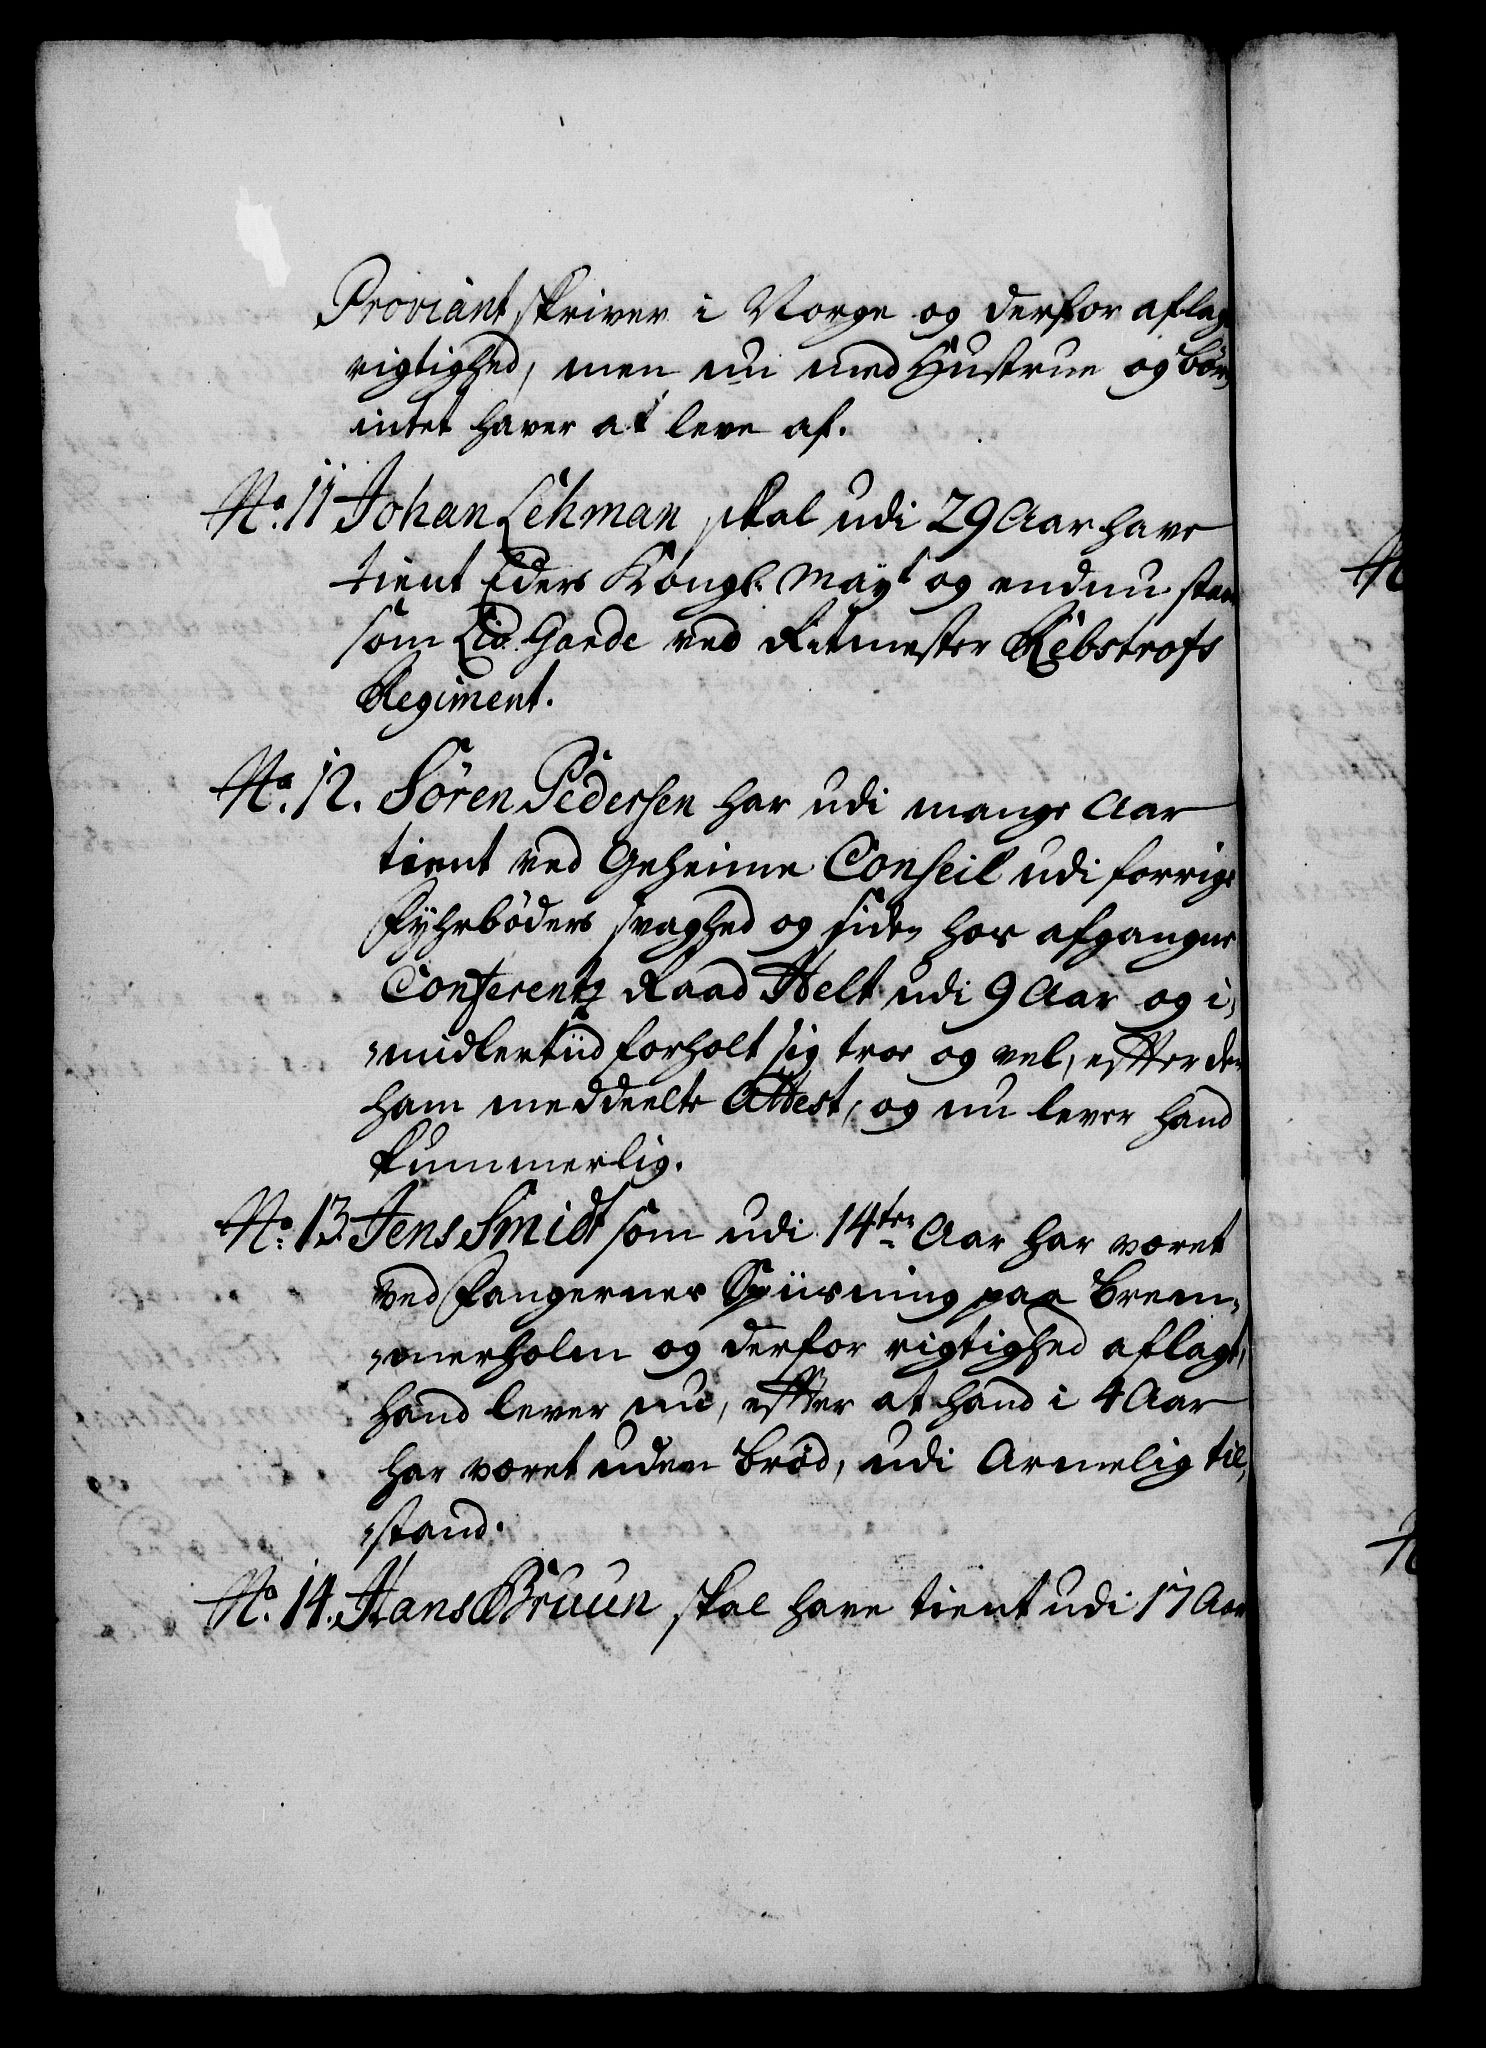 Proviantskriver i Norge og derfor aflagt
rigtighed, men nu med Hustrue og børn
intet haver at leve af.
No. 11 Johan Lehman skal udi 29 Aar have
tient Eders Kongl. Mayt og endnu staar
som Liv Garde ved Ritmester Rebstrofs
Regiment.
No. 12. Sören Pedersen har udi mange Aar
tient ved Geheime Conseil udi forrige
Fyhrböders svaghed og siden hos afgangne
Conferentz Raad Helt udi 9 Aar og i-
midlertiid forholt sig troe og vel, effter den
ham meddeelte Attest, og nu lever hand
kummerlig.
No. 13 Jens Smidt som udi 14ten Aar har været
ved Fangernes Spiisning paa Brem-
merholm og derfor rigtighed aflagt,
hand lever nu, effter at hand i 4 Aar
har været uden Bröd, udi Armelig til-
stand.
No. 14. Hans Bruun skal have tient udi 17 Aar